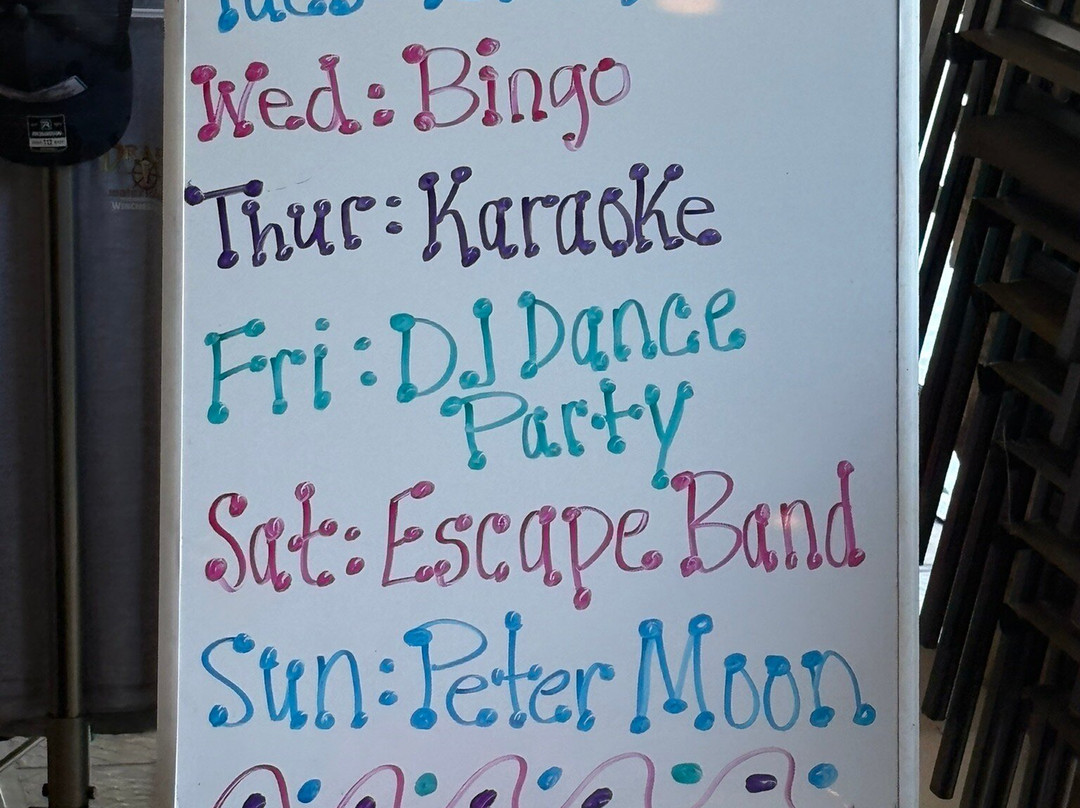 Tues
Wed: Bingo
Thur: Karaoke
Fri: DJ Dance
Party
Sat: Escape Band
Sun: Peter Moon